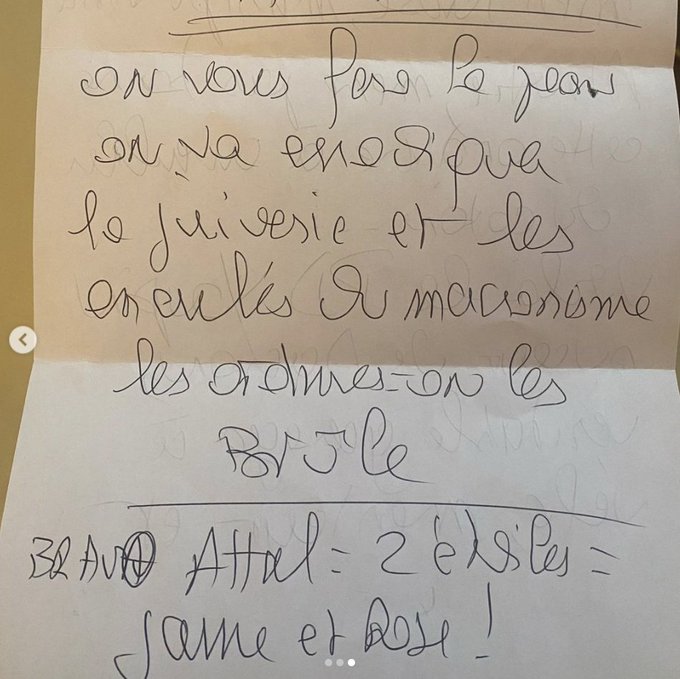 on vous fera la peau
on va eradiqua
la juiverie et les
enculés du macronisme
les ordures-on les
Brûle
BRAVO Attal = 2 étoiles =
Jaune et Rose !